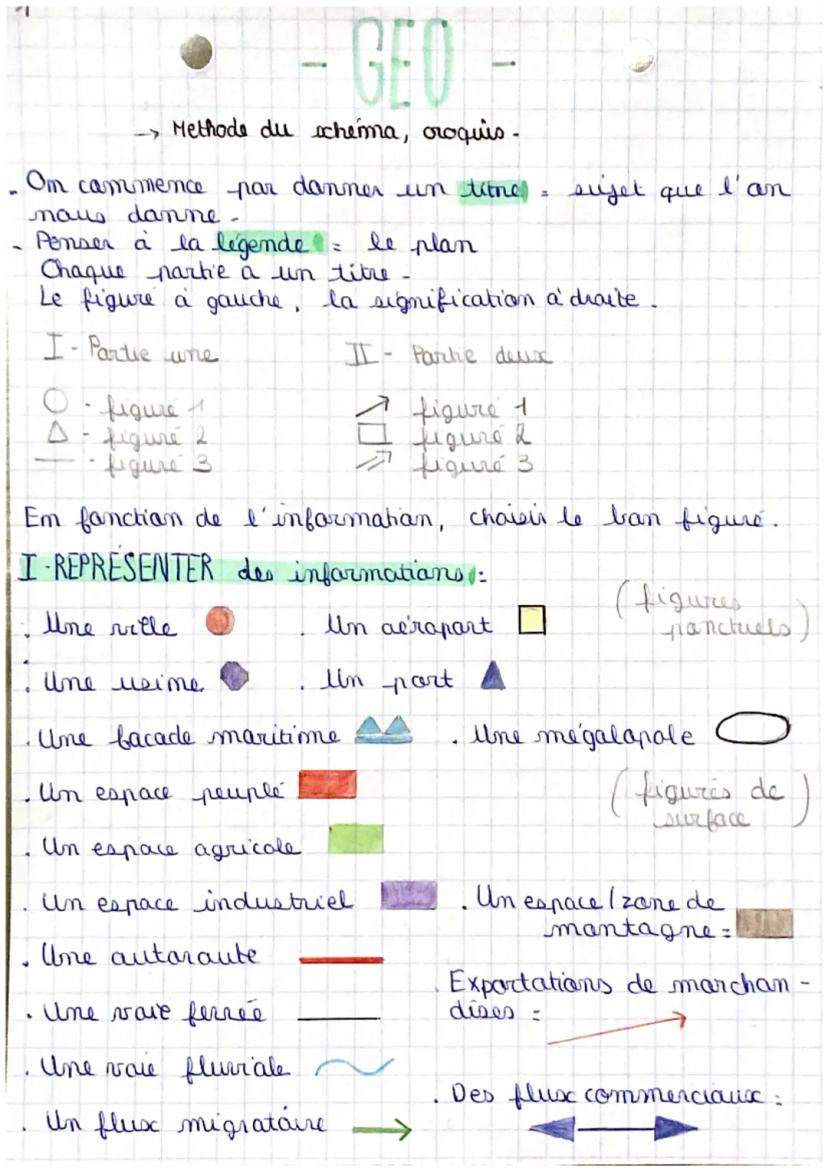 - GEO -
→ Methode du schéma, croquis.
- On commence par donner un titre = sujet que l'on
nous donne.
- Penser à la légende = le plan
Chaque partie a un titre.
Le figuré à gauche, la signification à droite.
I - Partie une II - Partie deux
- figuré 1 figuré 1
- figuré 2 figuré 2
- figuré 3 figuré 3
En fonction de l'information, choisir le bon figuré.
I - REPRÉSENTER des informations :
. Une ville . Un aéroport (figurés ponctuels)
. Une usine . Un port
. Une facade maritime . Une mégalopole
. Un espace peuplé (figurés de surface)
. Un espace agricole
. Un espace industriel . Un espace/zone de
montagne =
. Une autoroute
. Exportations de marchan-
dises =
. Une voie ferrée
. Une voie fluviale
. Des flux commerciaux :
. Un flux migratoire